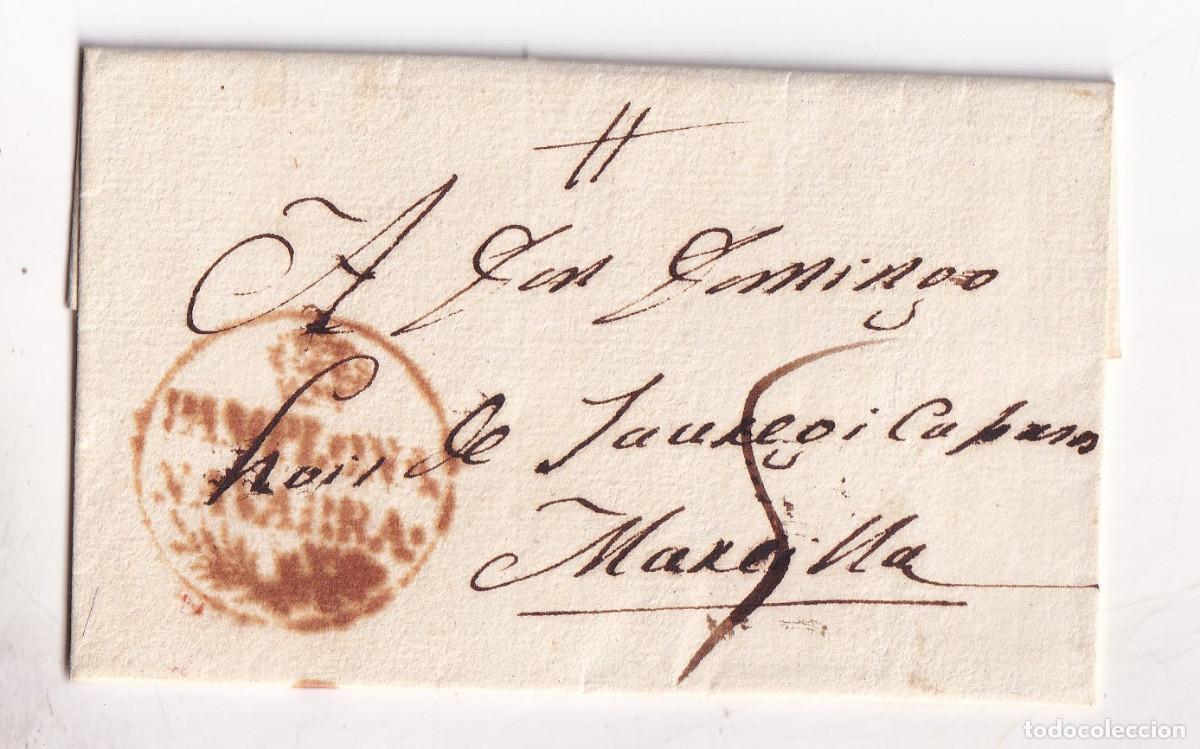 A Don Domingo
de Jauregi Caparoso
Marcilla
5
PAMPLONA
NAVARRA.
todocoleccion